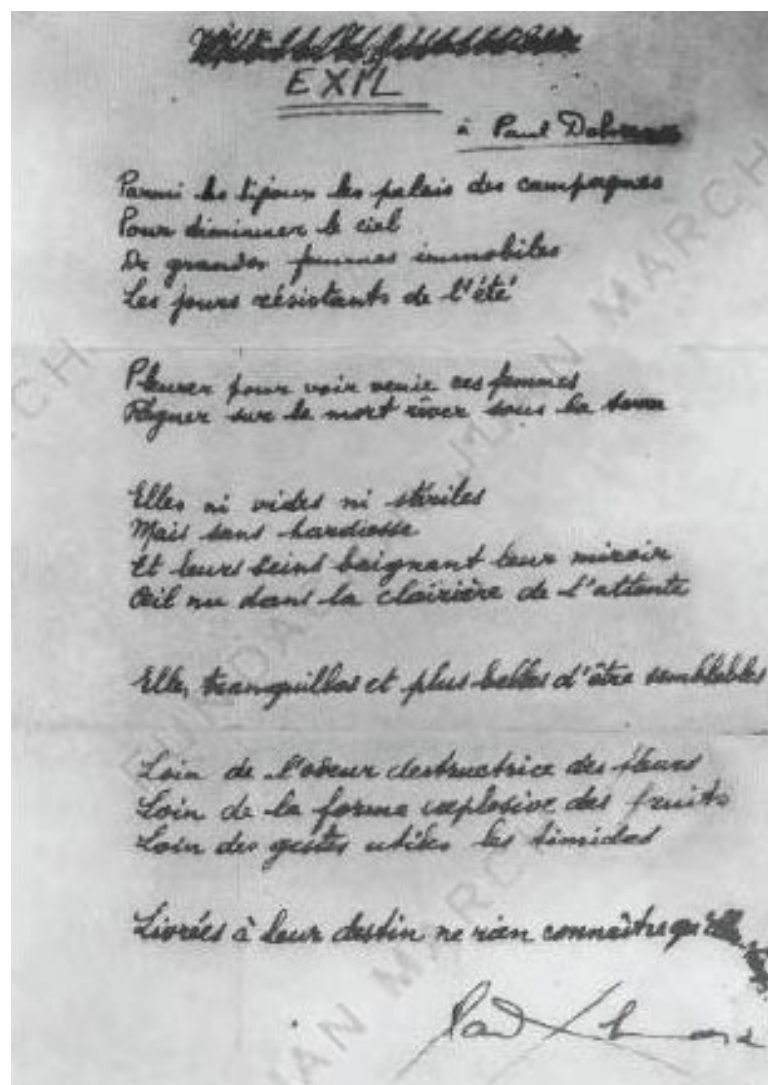 EXIL
à Paul
Parmi les bijoux les palais des campagnes
Pour diminuer le ciel
De grandes femmes immobiles
Les jours résistants de l'été
Pleurer pour voir venir ces femmes
Régner sur la mort rêver sous la terre
Elles ni vides ni stériles
Mais sans hardiesse
Et leurs seins baignant leur miroir
Œil nu dans la clairière de l'attente
Elles tranquilles et plus belles d'être semblables
Loin de l'odeur destructrice des fleurs
Loin de la forme explosive des fruits
Loin des gestes utiles les timides
Livrées à leur destin ne rien connaître qu'elles
FUNDACIÓN JUAN MARCH